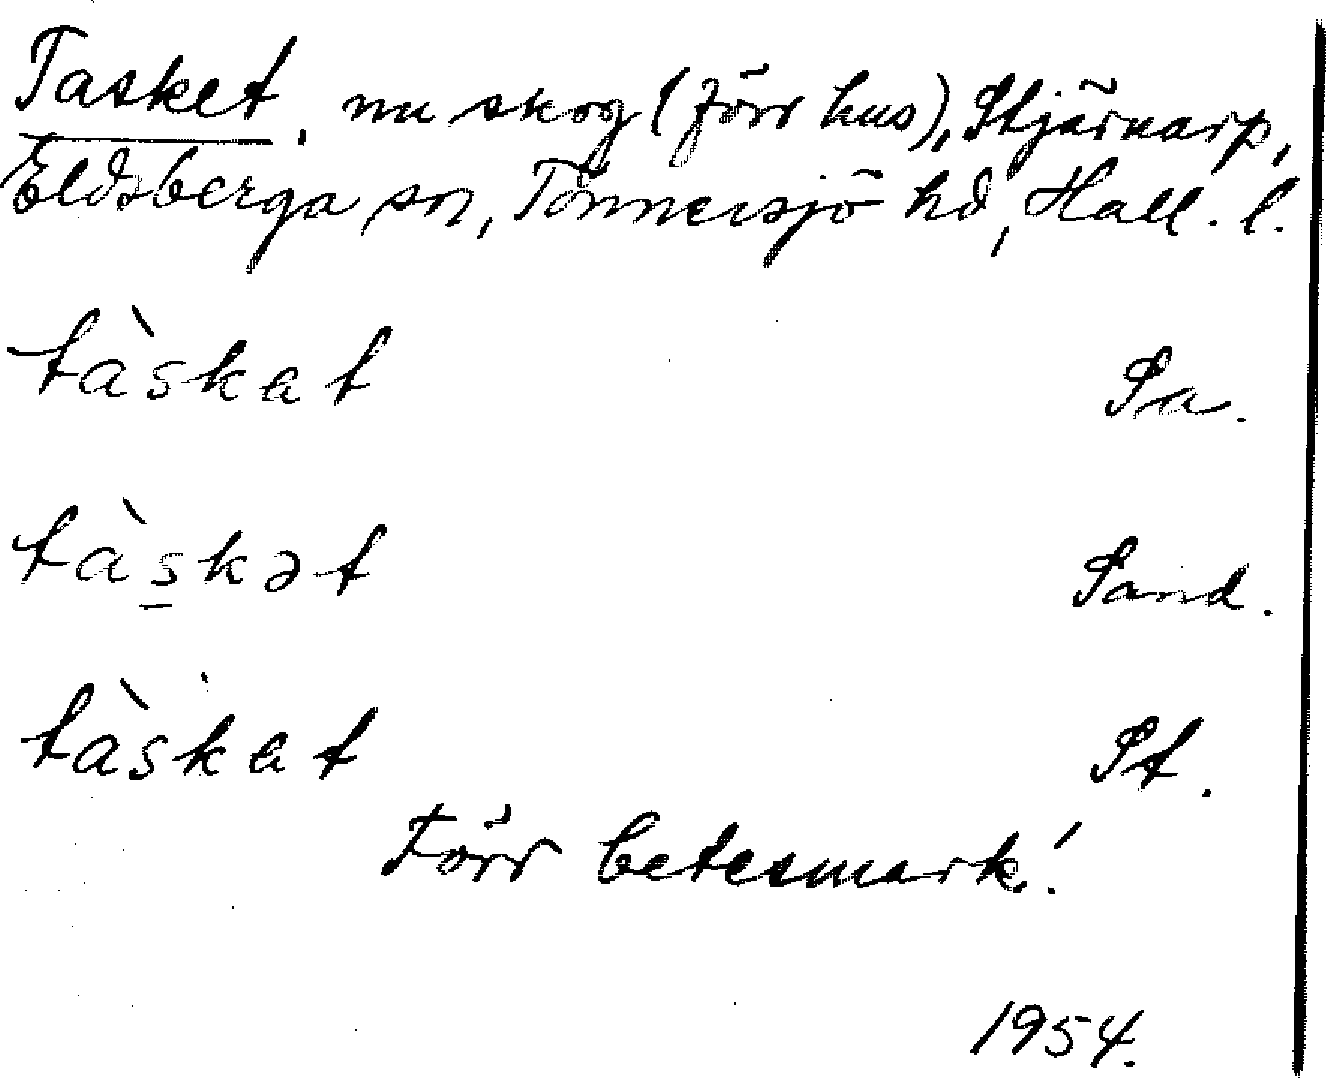 Tasket, nu skog (förr hus), Stjärnarp,
Eldsberga sn, Tönnersjö hd, Hall. l.
tàskat Sa.
tàskət Sand.
tàskat St.
Förr betesmark!
1954.